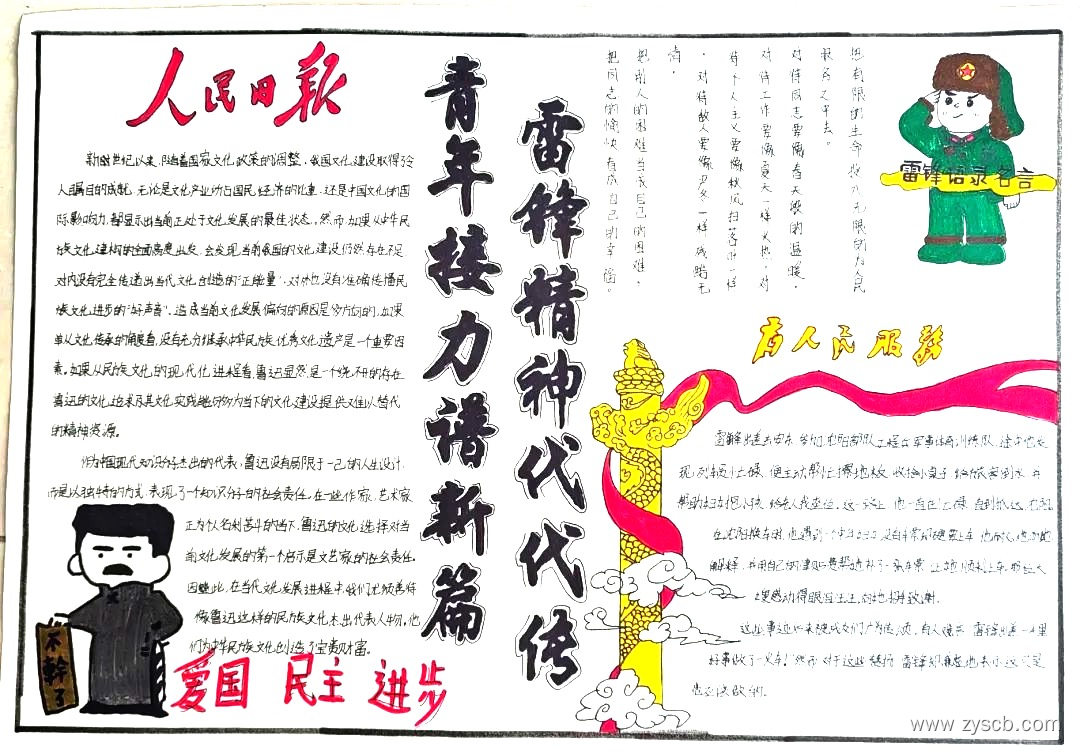 人民日报
新世纪以来,随着国家文化政策的调整,我国文化建设取得了令
人瞩目的成就,无论是文化产业协占国民经济的比重,还是中国文化的国
际影响力,都显示出当前正处于文化发展的最佳状态。然而,如果从中华民
族文化建构的全面高度出发,会发现当前我国的文化建设仍然存在不足
对内没有完全传递出当代文化创造的“正能量”,对外也没有准确传播民
族文化进步的“好声音”。造成当前文化发展偏向的原因是多方面的,如果
单从文化传承的角度看,没有充分继承中华民族优秀文化遗产是一个重要因
素。如果从民族文化的现代化进程看,鲁迅显然是一个绕不开的存在
鲁迅的文化追求及其文化实践能够为当下的文化建设提供难以替代
的精神资源。
作为中国现代知识分子杰出的代表,鲁迅没有局限于一己的人生设计,
而是以独特的方式,表现了一个知识分子的社会责任,在一些作家、艺术家
正为个人名利苦斗的当下,鲁迅的文化选择对当
前文化发展的第一个启示是文艺家的社会责任.
因此,在当代文化发展进程中,我们尤须善待
像鲁迅这样的民族文化杰出代表人物,他
们为中华民族文化创造了宝贵财富。
不幹了
爱国 民主 进步
青年接力谱新篇
雷锋精神代代传
把有限的生命投入无限的为人民
服务之中去。
对待同志要像春天般的温暖,
对待工作要像夏天一样火热,对
待个人主义要像秋风扫落叶一样
,对待敌人要像严冬一样残酷无
情。
把别人的困难当成自己的困难,
把同志的愉快看成自己的幸福。
雷锋语录名言
为人民服务
雷锋出差去安东,参加沈阳部队工程兵军事体育训练队,途中他发
现,列车员忙碌,便主动帮忙擦地板,收拾小桌子,给旅客倒水,并
帮助妇女抱小孩,给老人找座位,这一路上,他一直忙碌,直到抵达,
在沈阳换车时,他遇到一个中年妇女没有车票却硬要上车,他耐心地
解释,并用自己的津贴费帮她补了一张车票,让她顺利上车,
感动得眼泪汪汪,向他拱手致谢.
这些事迹后来被战友们广为传颂,有人说:“雷锋出差一千里
好事做了一火车!”然而,对于这些赞扬,雷锋却谦虚地表示,这只是
他应该做的.
www.zyscb.com